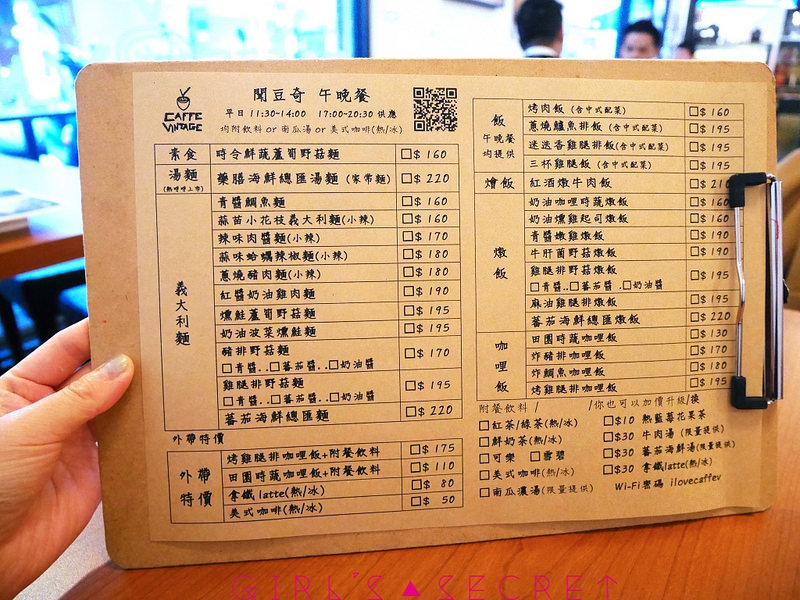 CAFFE
VINTAGE
聞豆奇 午晚餐
平日 11:30~14:00 17:00~20:30 供應
均附飲料 or 南瓜湯 or 美式咖啡(熱/冰)
素食 時令鮮蔬蘆筍野菇麵 □$ 160
湯麵 (熱呼呼上市) 藥膳海鮮總匯湯麵 (家常麵) □$ 220
義大利麵
青醬鯛魚麵 □$ 160
蒜苗小花枝義大利麵(小辣) □$ 160
辣味肉醬麵(小辣) □$ 170
蒜味蛤蠣辣椒麵(小辣) □$ 180
蔥燒豬肉麵(小辣) □$ 180
紅醬奶油雞肉麵 □$ 190
燻鮭蘆筍野菇麵 □$ 195
奶油波菜燻鮭麵 □$ 195
豬排野菇麵 □$ 170
□青醬..□番茄醬..□奶油醬
雞腿排野菇麵 □$ 195
□青醬..□番茄醬..□奶油醬
蕃茄海鮮總匯麵 □$ 220
外帶特價
外帶特價
烤雞腿排咖哩飯+附餐飲料 □$ 175
田園時蔬咖哩飯+附餐飲料 □$ 110
拿鐵latte(熱/冰) □$ 80
美式咖啡(熱/冰) □$ 50
飯
午晚餐均提供
烤肉飯 (含中式配菜) □$ 160
蔥燒鱸魚排飯(含中式配菜) □$ 195
迷迭香雞腿排飯(含中式配菜) □$ 195
三杯雞腿飯 (含中式配菜) □$ 195
燴飯 紅酒燉牛肉飯 □$ 210
燉飯
奶油咖哩時蔬燉飯 □$ 160
奶油燻雞起司燉飯 □$ 160
青醬嫩雞燉飯 □$ 190
牛肝菌野菇燉飯 □$ 190
雞腿排野菇燉飯 □$ 195
□青醬..□番茄醬 .□奶油醬
麻油雞腿排燉飯 □$ 195
蕃茄海鮮總匯燉飯 □$ 220
咖哩飯
田園時蔬咖哩飯 □$ 130
炸豬排咖哩飯 □$ 170
炸鯛魚咖哩飯 □$ 180
烤雞腿排咖哩飯 □$ 195
附餐飲料 / /你也可以加價升級/換
□紅茶/綠茶(熱/冰) □$10 熱藍莓花果茶
□鮮奶茶(熱/冰) □$30 牛肉湯 (限量提供)
□可樂 □雪碧 □$30 蕃茄海鮮湯(限量提供)
□美式咖啡(熱/冰) □$30 拿鐵latte(熱/冰)
□南瓜濃湯(限量提供) Wi-Fi密碼 ilovecaffev
GIRL'S▲SECRET